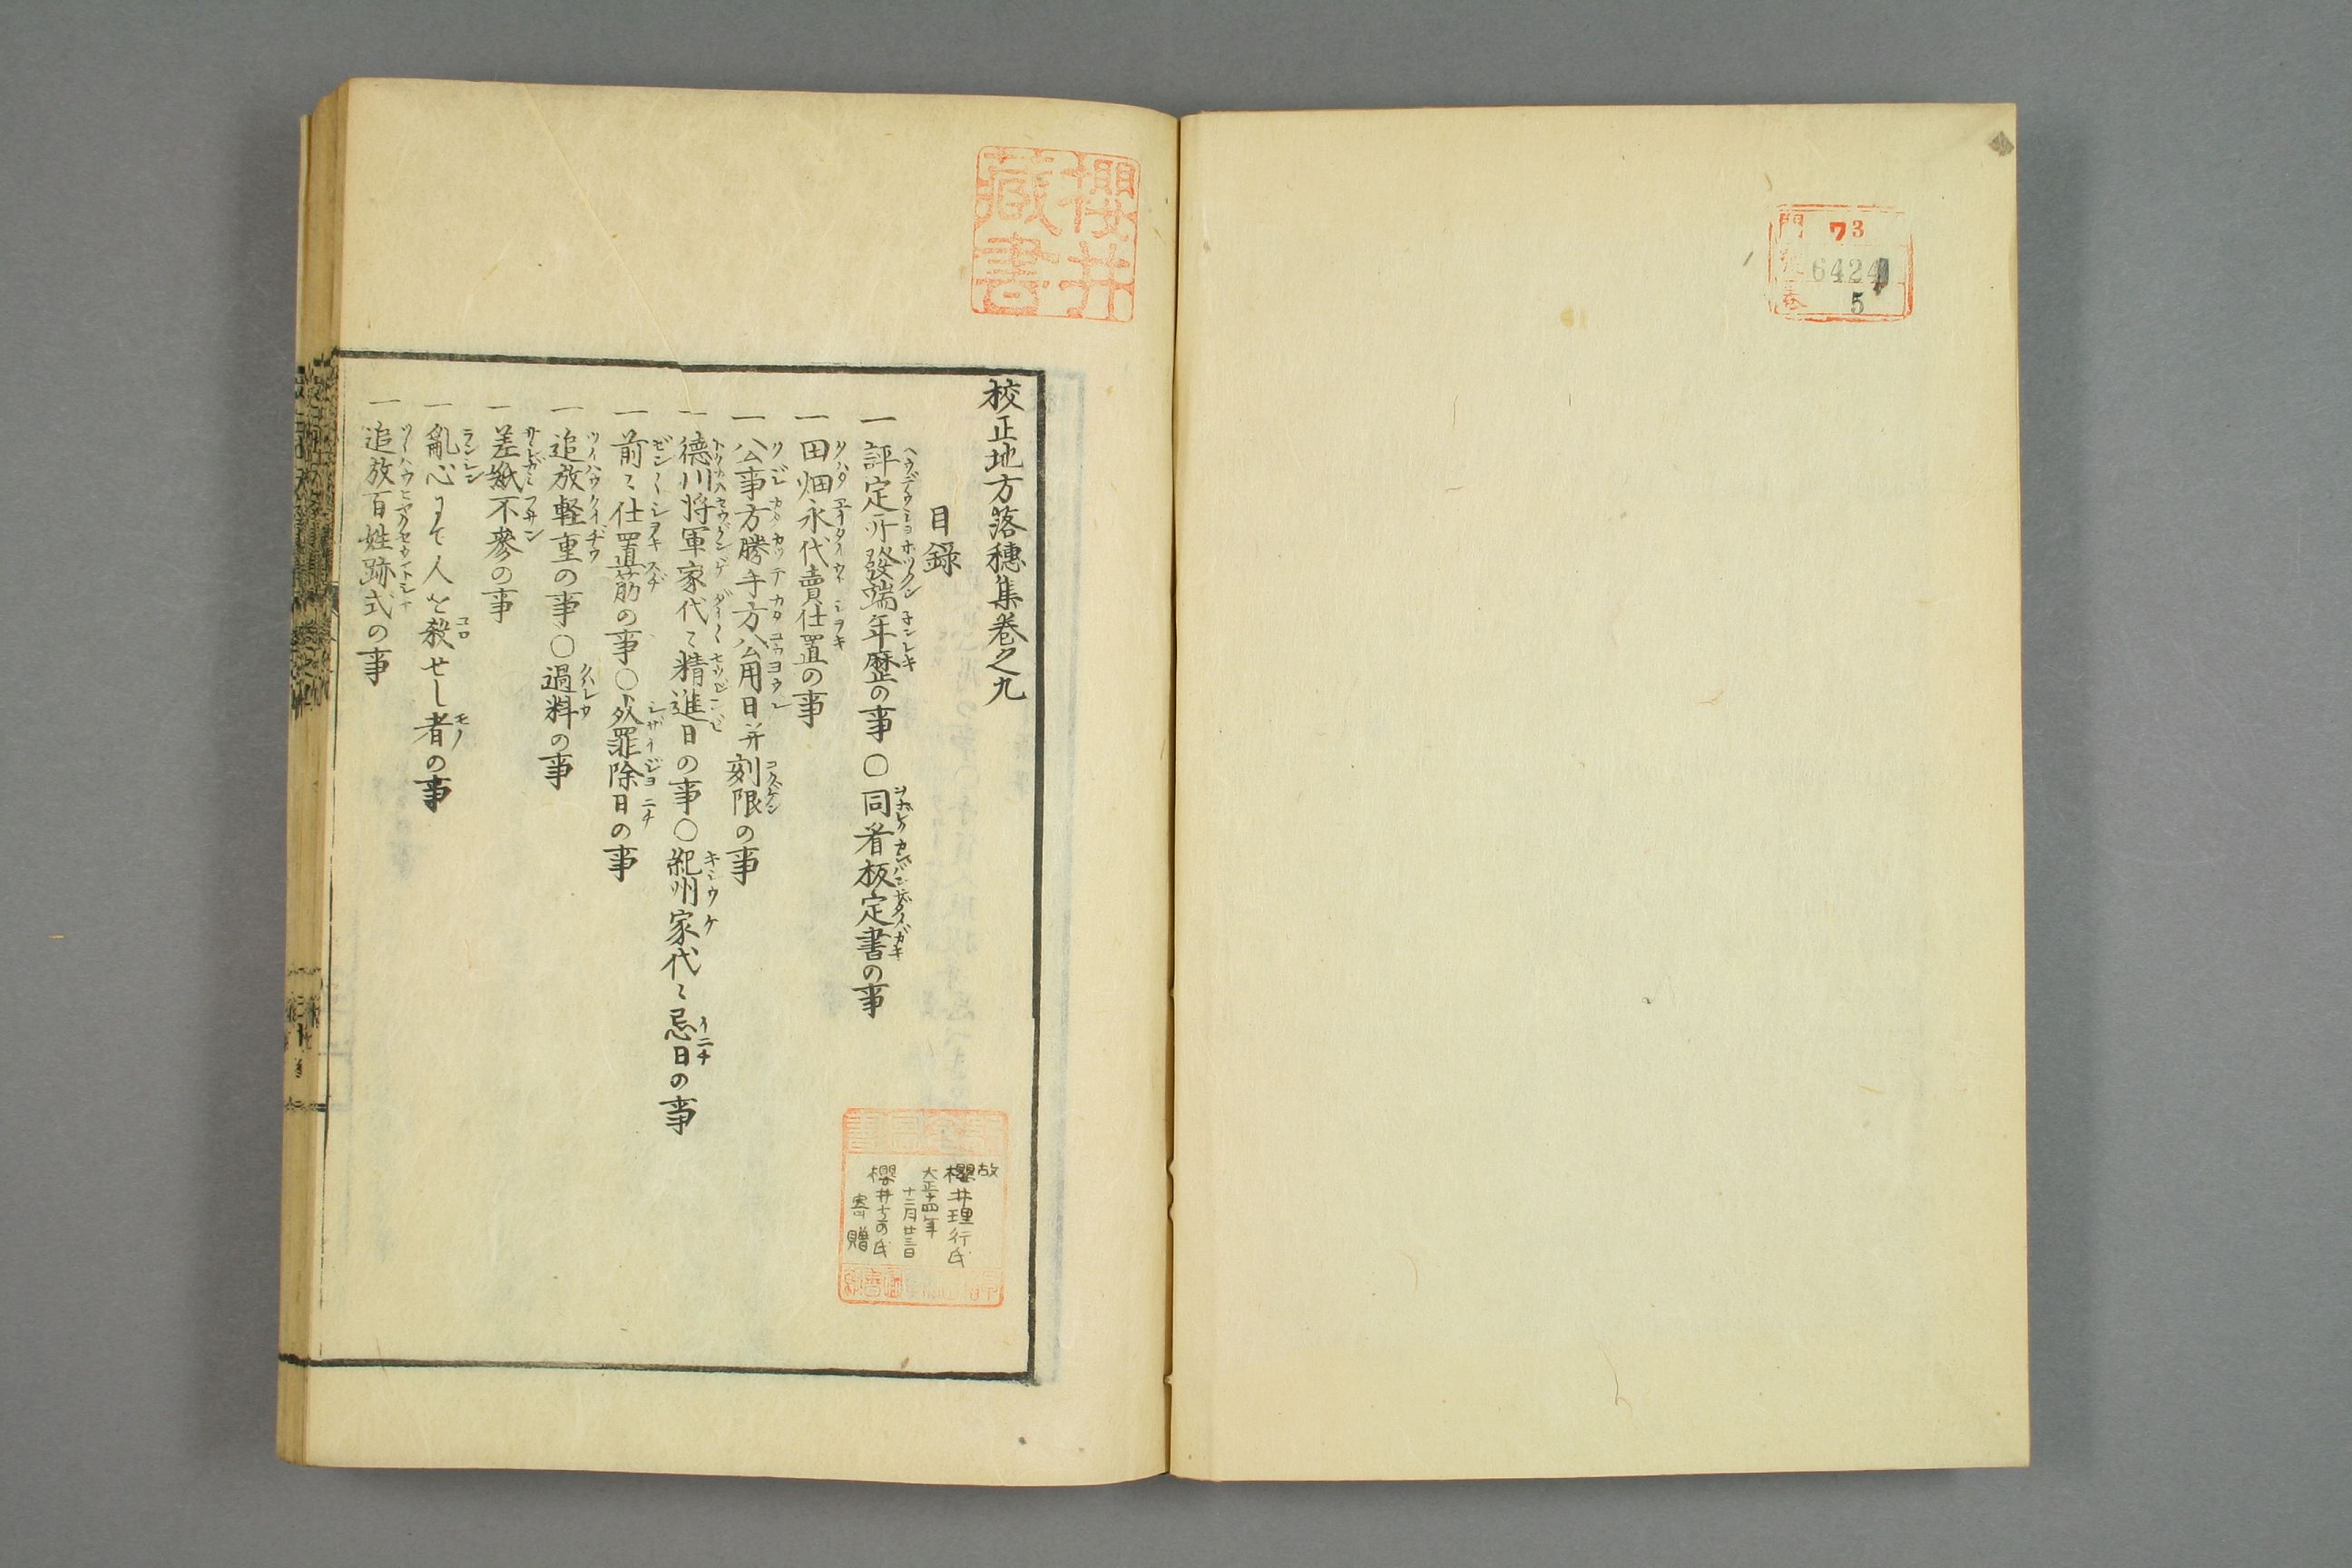 門 73
號 6424
卷 5
櫻井
藏書
校正地方落穗集卷之九
目録
一 評定所發端年歴の事 〇同看板定書の事
一 田畑永代賣仕置の事
一 公事方勝手方公用日并刻限の事
一 德川将軍家代〻精進日の事〇紀州家代〻忌日の事
一 前〻仕置筋の事〇死罪除日の事
一 追放軽重の事〇過料の事
一 差紙不參の事
一 亂心にて人を殺せし者の事
一 追放百姓跡式の事
故
櫻井理行氏
大正十四年
十二月廿三日
寄贈